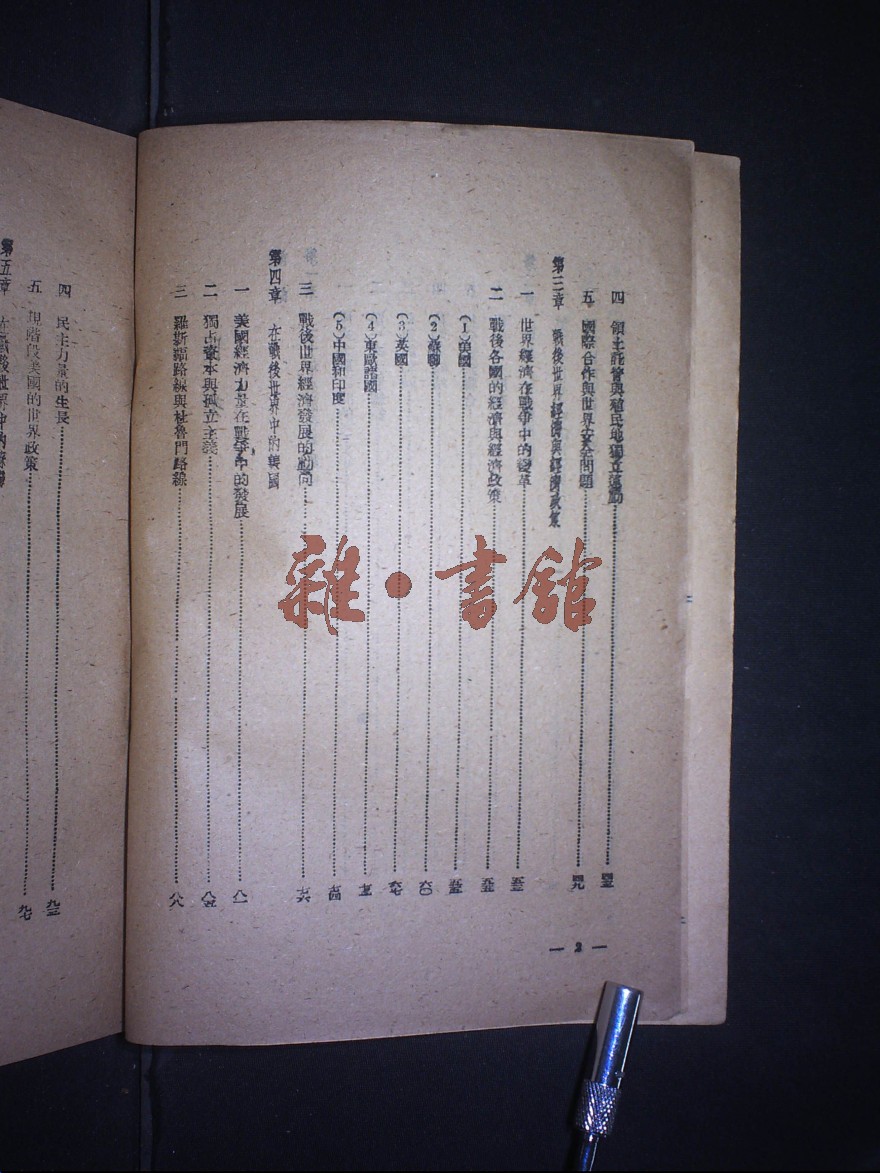 四　領土託管與殖民地獨立運動……四三
五　國際合作與世界安全問題……四九
第三章　戰後世界經濟與經濟政策
一　世界經濟在戰爭中的變革
二　戰後各國的經濟與經濟政策
(1)美國
(2)蘇聯……六〇
(3)英國……六七
(4)東歐諸國
(5)中國和印度……七四
三　戰後世界經濟發展的動向……七六
第四章　在戰後世界中的美國
一　美國經濟力量在戰爭中的發展……八一
二　獨占資本與孤立主義……八五
三　羅斯福路線與杜魯門路線……八八
— 2 —
四　民主力量的生長……九三
五　現階段美國的世界政策……九七
第五章　在戰後世界中的蘇聯
雜·書館